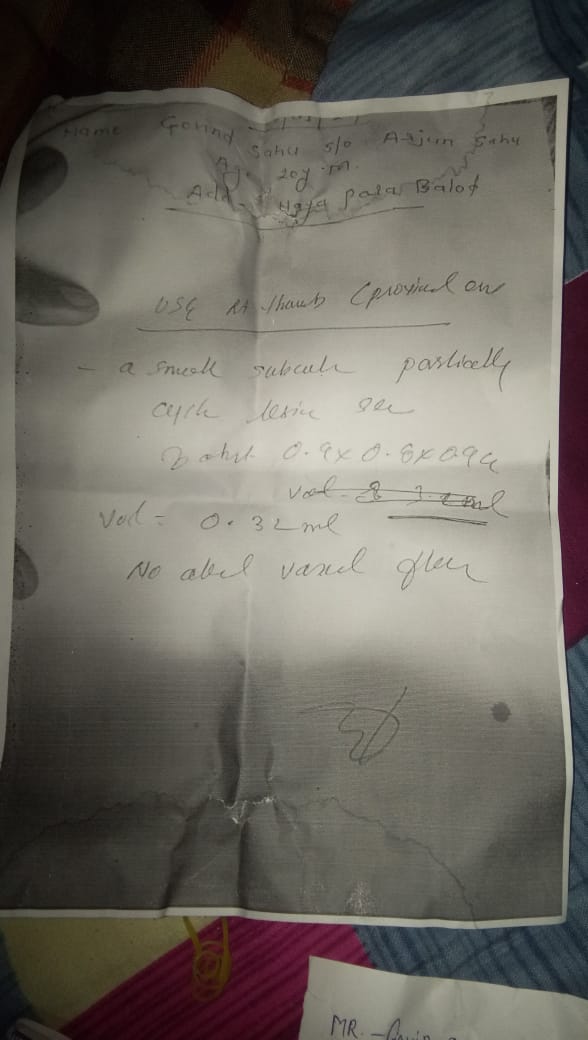 Name Govind Sahu s/o Arjun Sahu
Ag. 20y.m.
Add- Naya para Balod
USG Rt thumb (proximal
- a small subcuta partically
cystic lesion see
0.9x0.8x0.9c
vol-
Vol = 0.32ml
No abnl vascul flow
MR. -